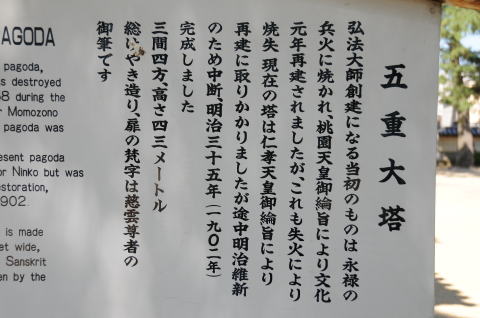 五重大塔
弘法大師創建になる当初のものは 永禄の
兵火に焼かれ、桃園天皇御綸旨により文化
元年再建されましたが、これも失火により
焼失 現在の塔は仁孝天皇御綸旨により
再建に取りかかりましたが途中明治維新
のため中断、明治三十五年(一九〇二年)
完成しました
三間四方、高さ四三メートル
総けやき造り、扉の梵字は慈雲尊者の
御筆です
AGODA
pagoda,
s destroyed
58 during the
r Momozono
pagoda was
esent pagoda
or Ninko but was
estoration,
902.
is made
et wide,
Sanskrit
en by the